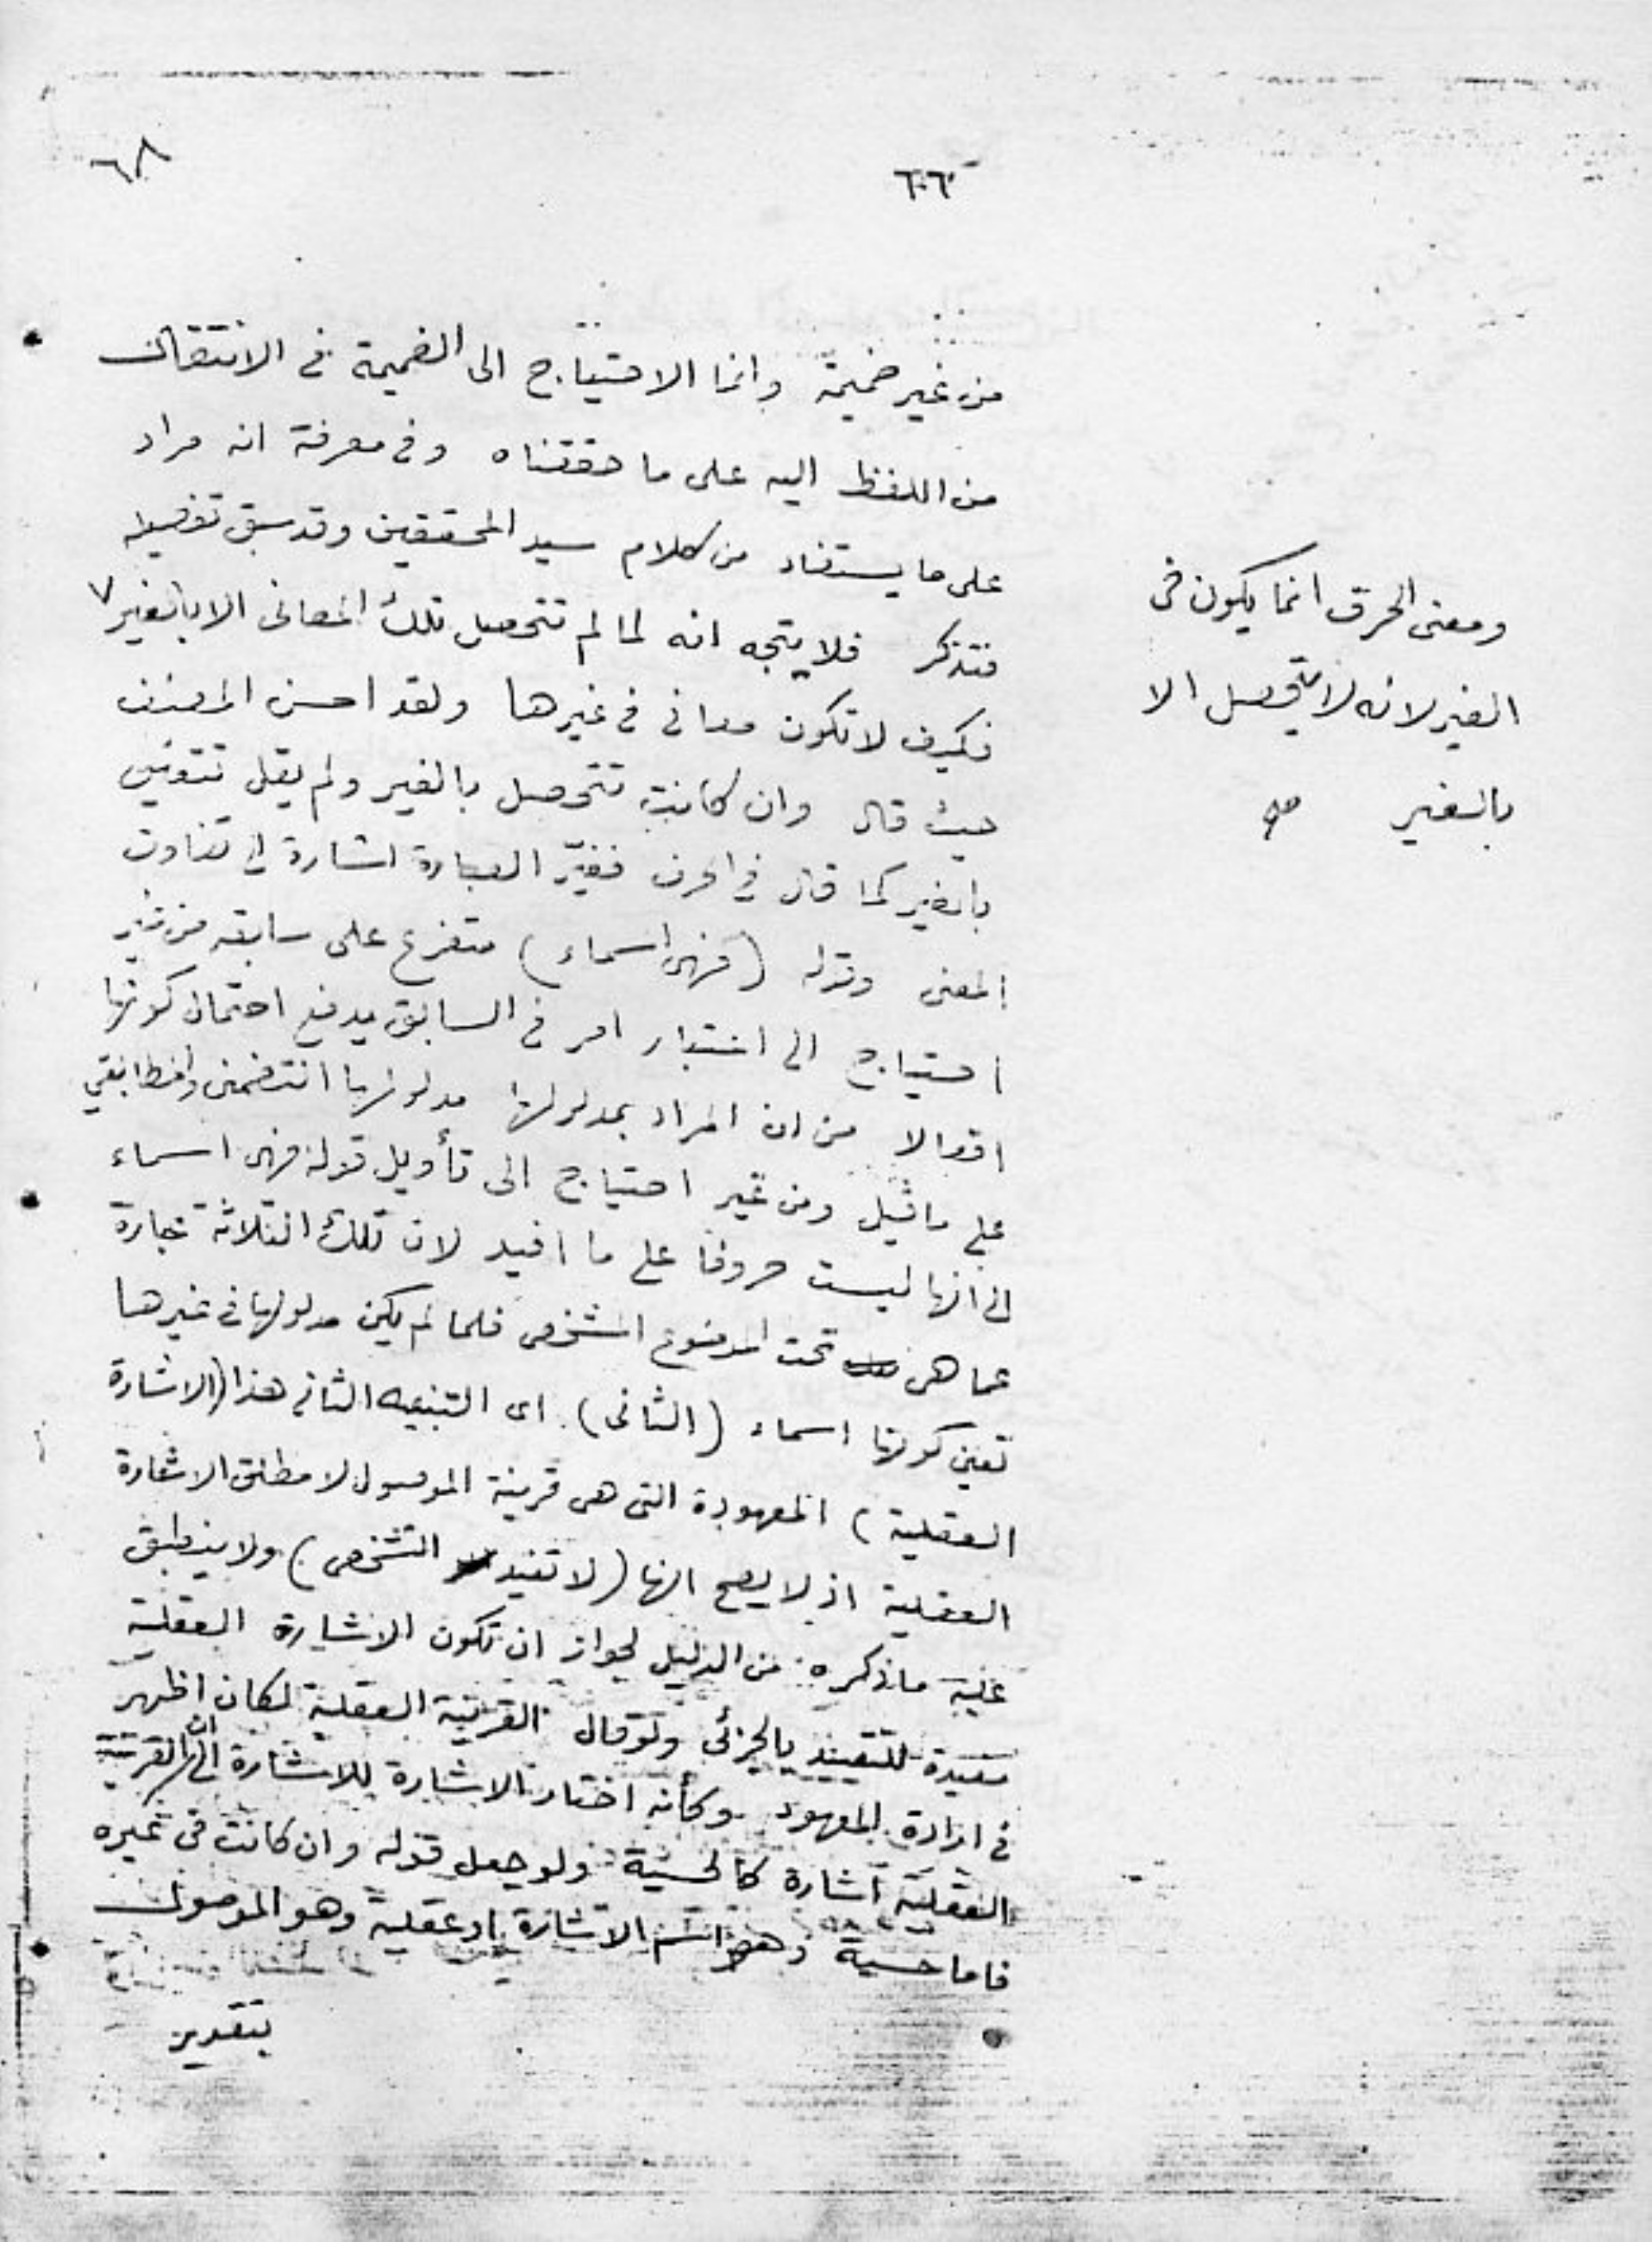 ٦٨
٦٦
من غير ضميمة وانما الاحتياج الى الضميمة فى الانتقال
من اللفظ اليه على ما حققناه وفى معرفة انه مراد
على ما يستفاد من كلام سيد المحققين وقد سبق تفصيله
فتذكر فلا يتجه انه لما لم تتحصل تلك المعانى الا بالغير ٧
فكيف لا تكون معانى فى غيرها ولقد احسن المصنف
حيث قال وان كانت تتحصل بالغير ولم يقل تتعين
بالغير كما قال فى الحرف فغيّر العبارة اشارة الى تفاوت
المعنى وقوله (فهى اسماء) متفرع على سابقه من غير
احتياج الى اعتبار امر فى السابق يدفع احتمال كونها
افعالا من ان المراد بمدلولها مدلولها التضمنى والمطابقي
على ما قيل ومن غير احتياج الى تأويل قوله فهى اسماء
الى انها ليست حروفا على ما افيد لان تلك الثلاثة عبارة
عما هى تحت الموضوع المشخص فلما لم يكن مدلولها فى غيرها
تعين كونها اسماء (الثانى) اى التنبيه الثانى هذا (الاشارة
العقلية) المعهودة التى هى قرينة الموصول لا مطلق الاشارة
العقلية اذ لا يصح انها (لا تفيد التشخص) ولا ينطبق
عليه ما ذكره من الدليل لجواز ان تكون الاشارة العقلية
مفيدة للتقييد بالجزئى ولو قال القرينة العقلية لكان اظهر
فى ارادة المعهود وكأنه اختار الاشارة للاشارة الى ان القرينة
العقلية اشارة كالحسية ولو جعل قوله وان كانت فى غيره
فاما حسية وهو اسم الاشارة او عقلية وهو الموصول
بتقدير
ومعنى الحرف انما يكون فى
الغير لانه لا يتحصل الا
بالغير صح